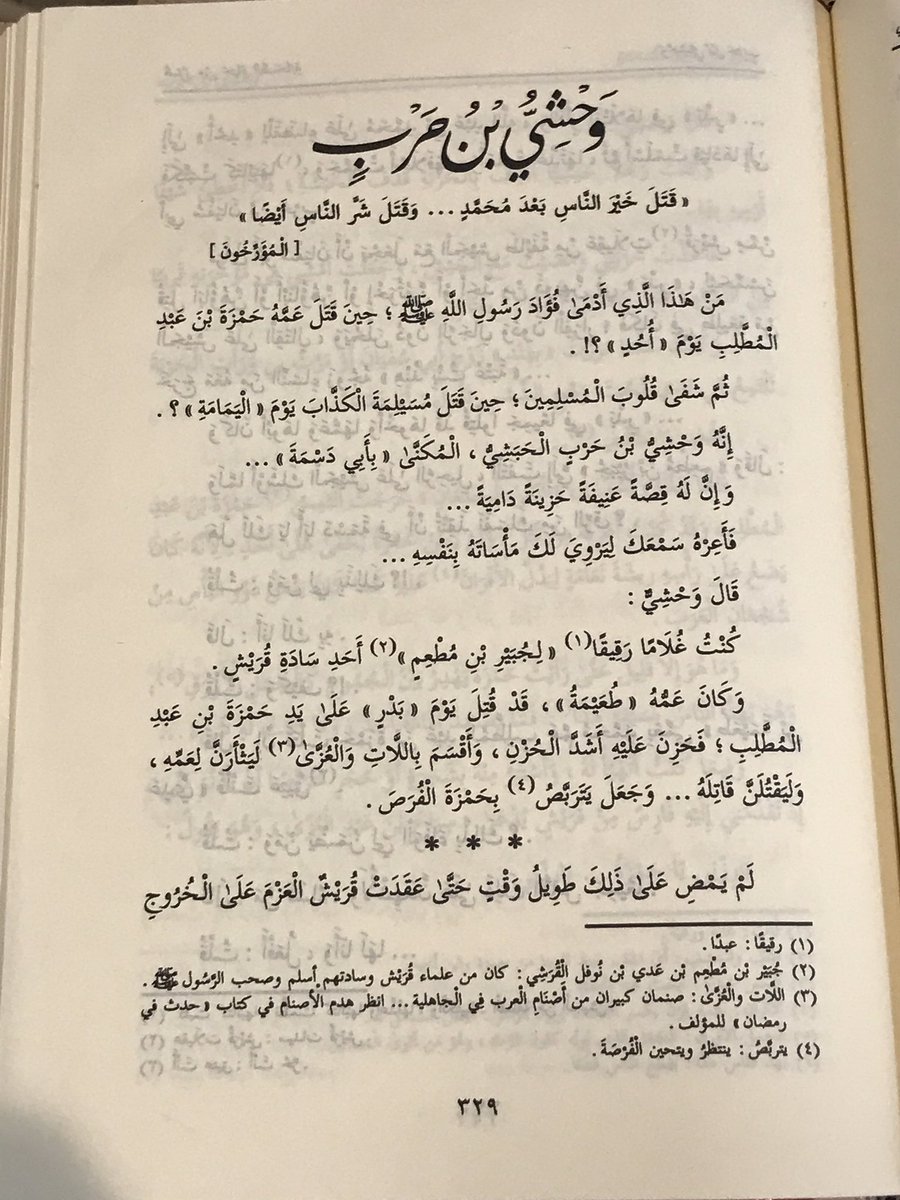 وَحْشِيُّ بْنُ حَرْبٍ
« قَتَلَ خَيْرَ النَّاسِ بَعْدَ مُحَمَّدٍ ... وَقَتَلَ شَرَّ النَّاسِ أَيْضًا »
[ الْمُؤَرِّخُونَ ]
مَنْ هَٰذَا الَّذِي أَدْمَىٰ فُؤَادَ رَسُولِ اللَّهِ ﷺ ؛ حِينَ قَتَلَ عَمَّهُ حَمْزَةَ بْنَ عَبْدِ
الْمُطَّلِبِ يَوْمَ « أُحُدٍ » ؟! .
ثُمَّ شَفَىٰ قُلُوبَ الْمُسْلِمِينَ ؛ حِينَ قَتَلَ مُسَيْلِمَةَ الْكَذَّابَ يَوْمَ « الْيَمَامَةِ » ؟ .
إِنَّهُ وَحْشِيُّ بْنُ حَرْبٍ الْحَبَشِيُّ ، الْمُكَنَّىٰ « بِأَبِي دَسْمَةَ » ...
وَإِنَّ لَهُ قِصَّةً عَنِيفَةً حَزِينَةً دَامِيَةً ...
فَأَعِرْهُ سَمْعَكَ لِيَرْوِيَ لَكَ مَأْسَاتَهُ بِنَفْسِهِ ...
قَالَ وَحْشِيٌّ :
كُنْتُ غُلَامًا رَقِيقًا(١) « لِجُبَيْرِ بْنِ مُطْعِمٍ »(٢) أَحَدِ سَادَةِ قُرَيْشٍ .
وَكَانَ عَمُّهُ « طُعَيْمَةُ » ، قَدْ قُتِلَ يَوْمَ « بَدْرٍ » عَلَىٰ يَدِ حَمْزَةَ بْنِ عَبْدِ
الْمُطَّلِبِ ؛ فَحَزِنَ عَلَيْهِ أَشَدَّ الْحُزْنِ ، وَأَقْسَمَ بِاللَّاتِ وَالْعُزَّىٰ(٣) لَيَثْأَرَنَّ لِعَمِّهِ ،
وَلَيَقْتُلَنَّ قَاتِلَهُ ... وَجَعَلَ يَتَرَبَّصُ(٤) بِحَمْزَةَ الْفُرَصَ .
* * *
لَمْ يَمْضِ عَلَىٰ ذَلِكَ طَوِيلُ وَقْتٍ حَتَّىٰ عَقَدَتْ قُرَيْشٌ الْعَزْمَ عَلَىٰ الْخُرُوجِ
(١) رقيقًا : عبدًا .
(٢) جُبَيْر بْن مُطْعِم بْن عَدي بْن نُوفل الْقُرَشِي : كان من علماء قُرَيْش وسادتهم أسلم وصحب الرَّسُول ﷺ .
(٣) اللَّات والْعُزَّىٰ : صنمان كبيران من أَصْنَام العرب فِي الْجاهلية ... انظر هدم الْأصنام في كتاب « حدث في
رمضان » للمؤلف .
(٤) يتربَّصُ : ينتظرُ ويتحين الْفُرْصَةَ .
٣٢٩